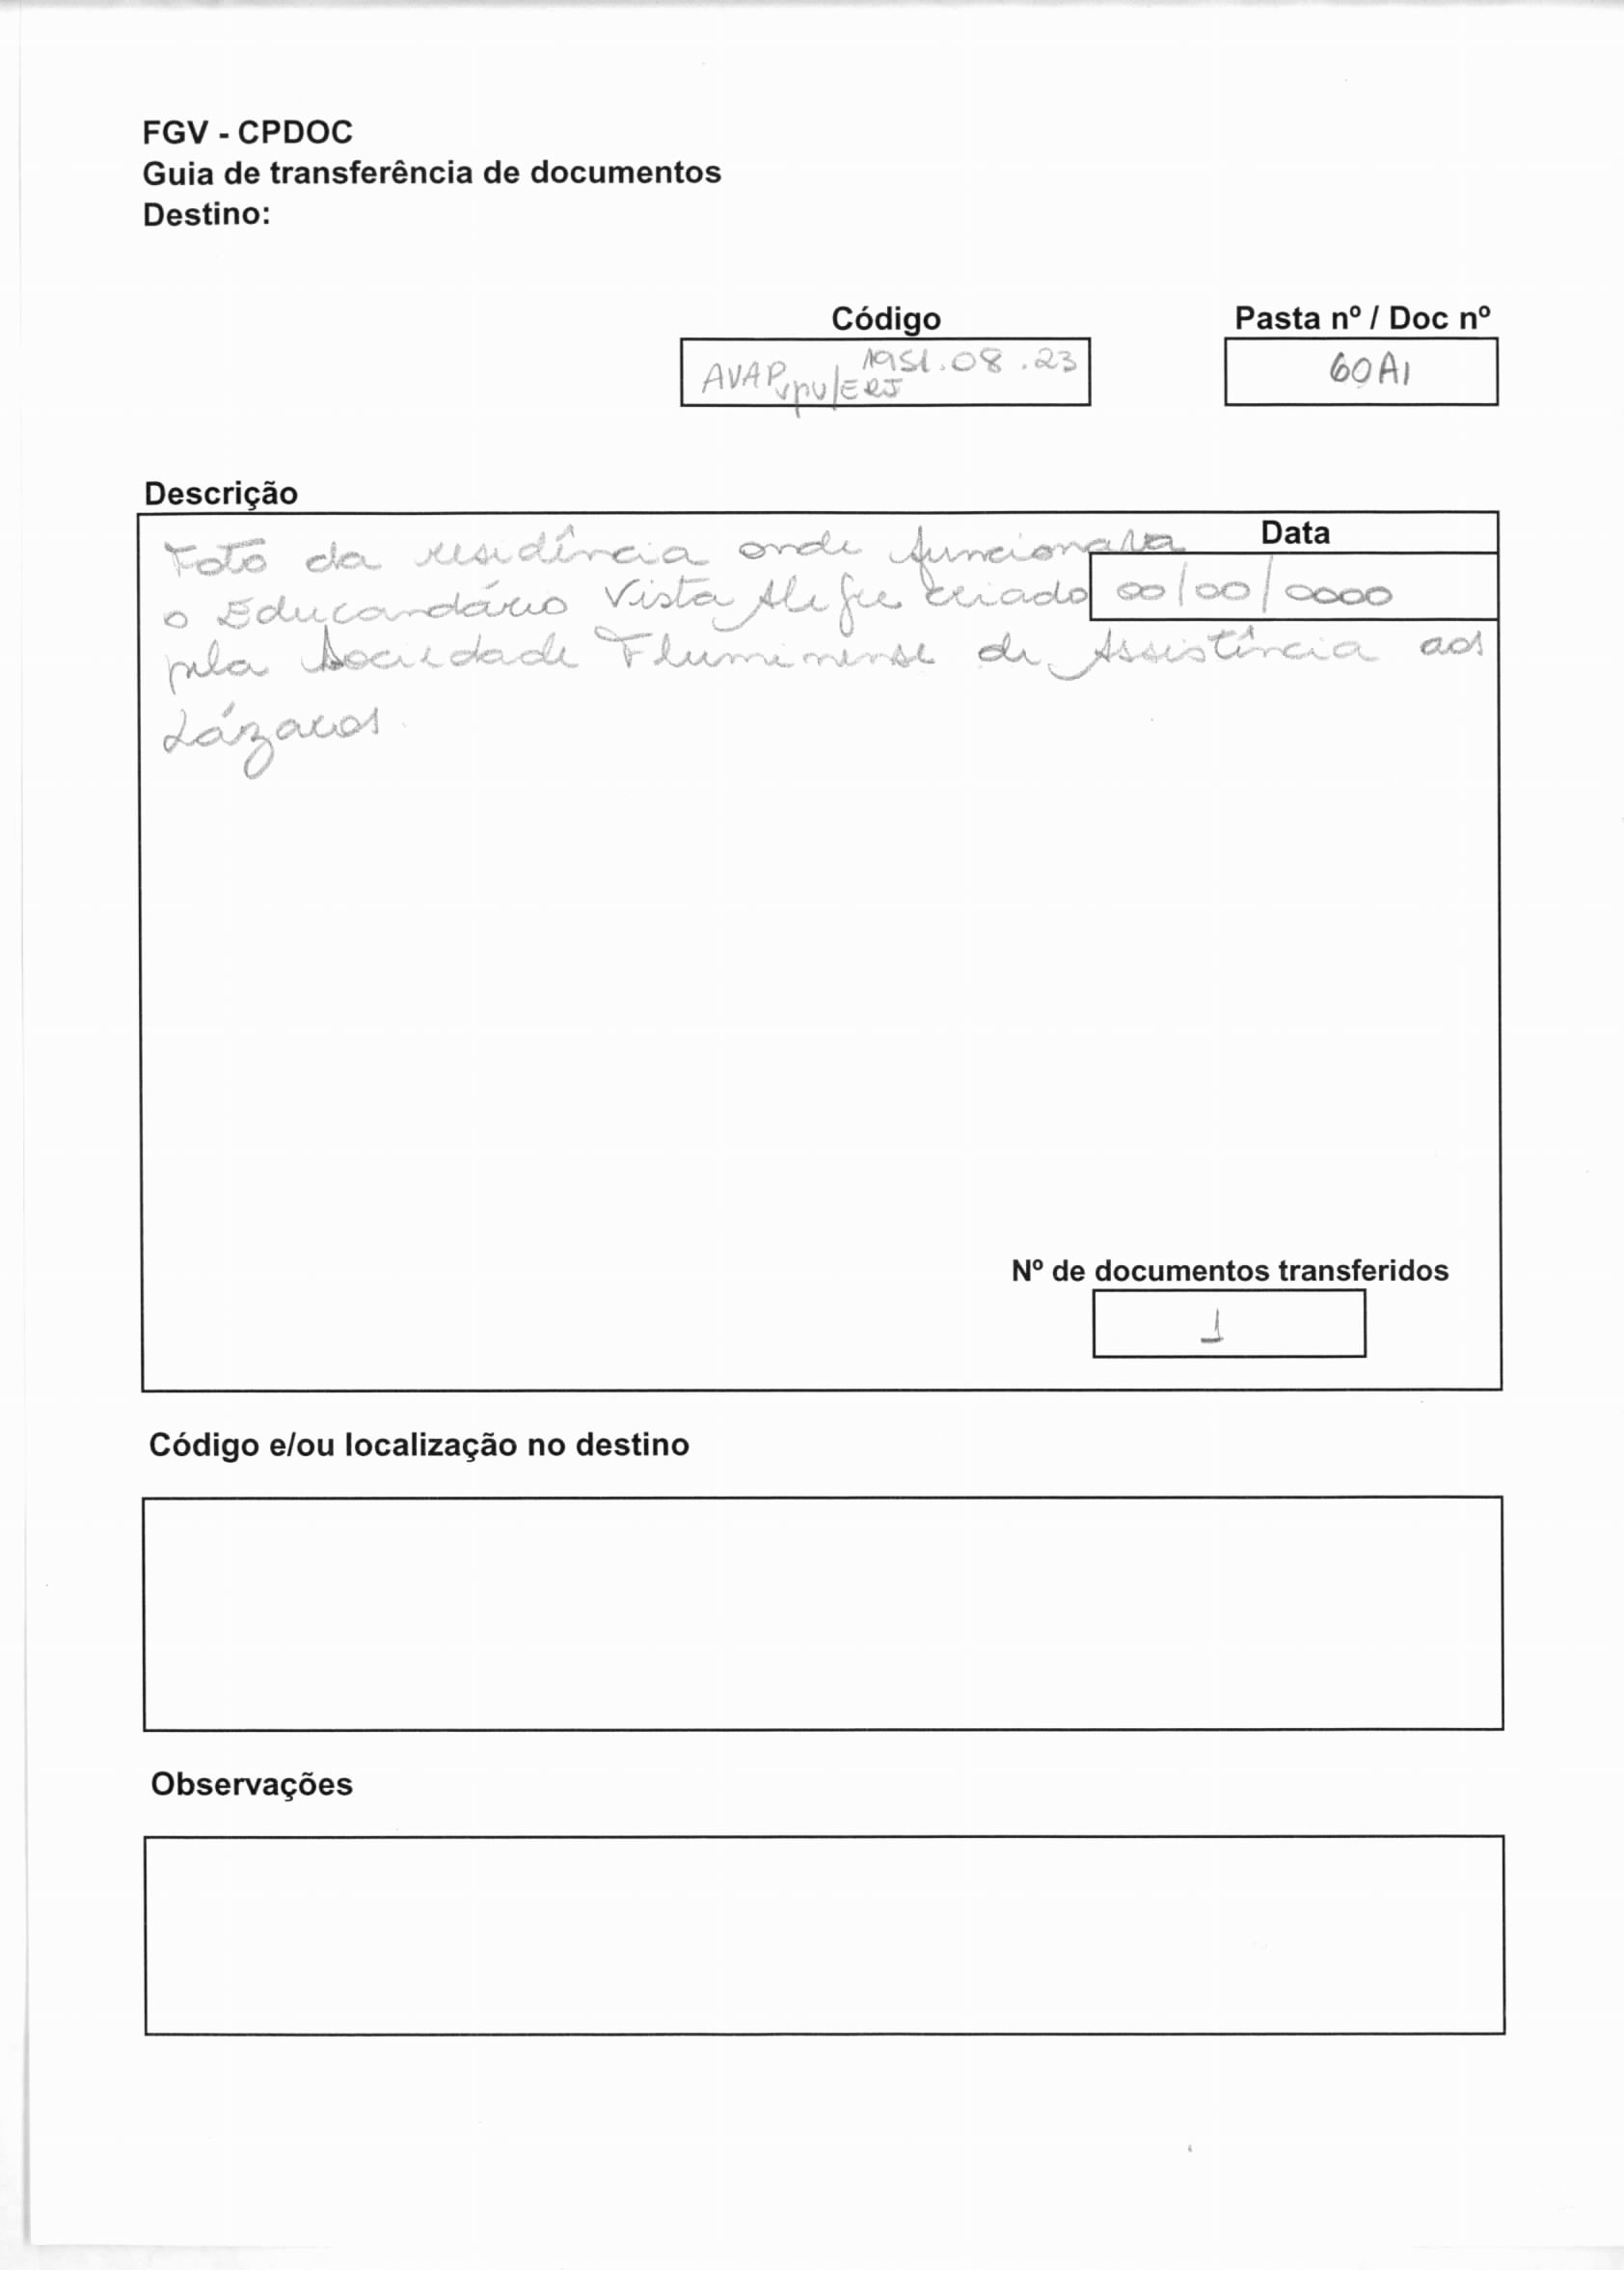 FGV - CPDOC
Guia de transferência de documentos
Destino:
Código
AVAP vpu/ERJ 1951.08.23
Pasta nº / Doc nº
60A1
Descrição
Data
Foto da residência onde funcionava
o Educandário Vista Alegre criado
00/00/0000
pela Sociedade Fluminense de Assistência aos
Lázaros.
Nº de documentos transferidos
1
Código e/ou localização no destino
Observações